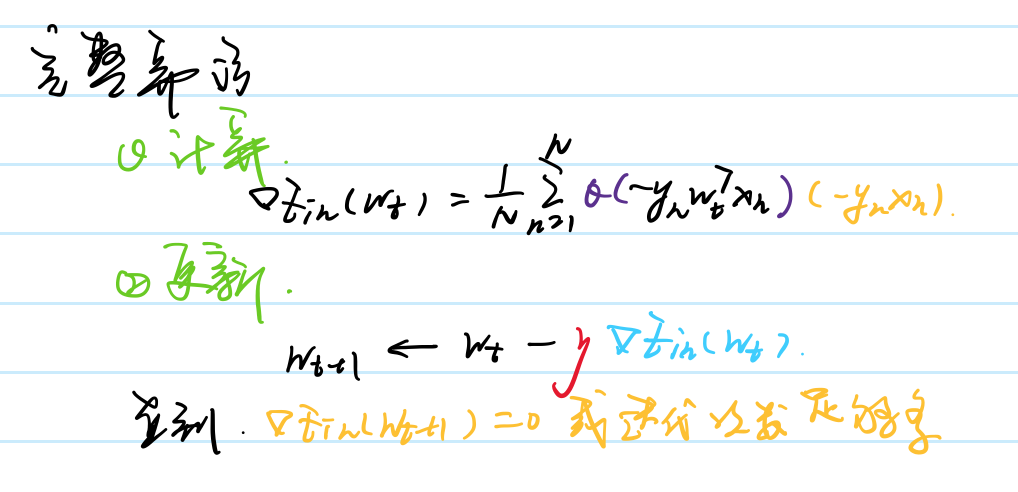 完整算法
① 计算.
∇Eᵢₙ(wₜ) = 1/N ∑ₙ₌₁ᴺ θ(-yₙwₜᵀxₙ)(-yₙxₙ).
② 更新.
wₜ₊₁ ← wₜ - η ∇Eᵢₙ(wₜ).
直到. ∇Eᵢₙ(wₜ₊₁) = 0 或迭代次数足够多